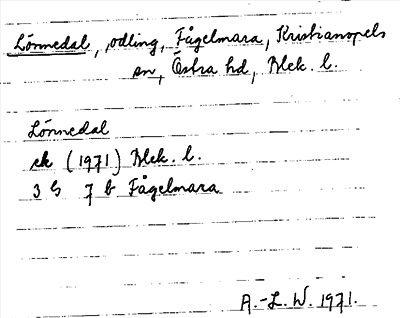 Lönnedal, odling, Fågelmara, Kristianopels
sn, Östra hd, Blek. l.
Lönnedal
ek (1971) Blek. l.
3 G 7 b Fågelmara
A.-L. W. 1971.